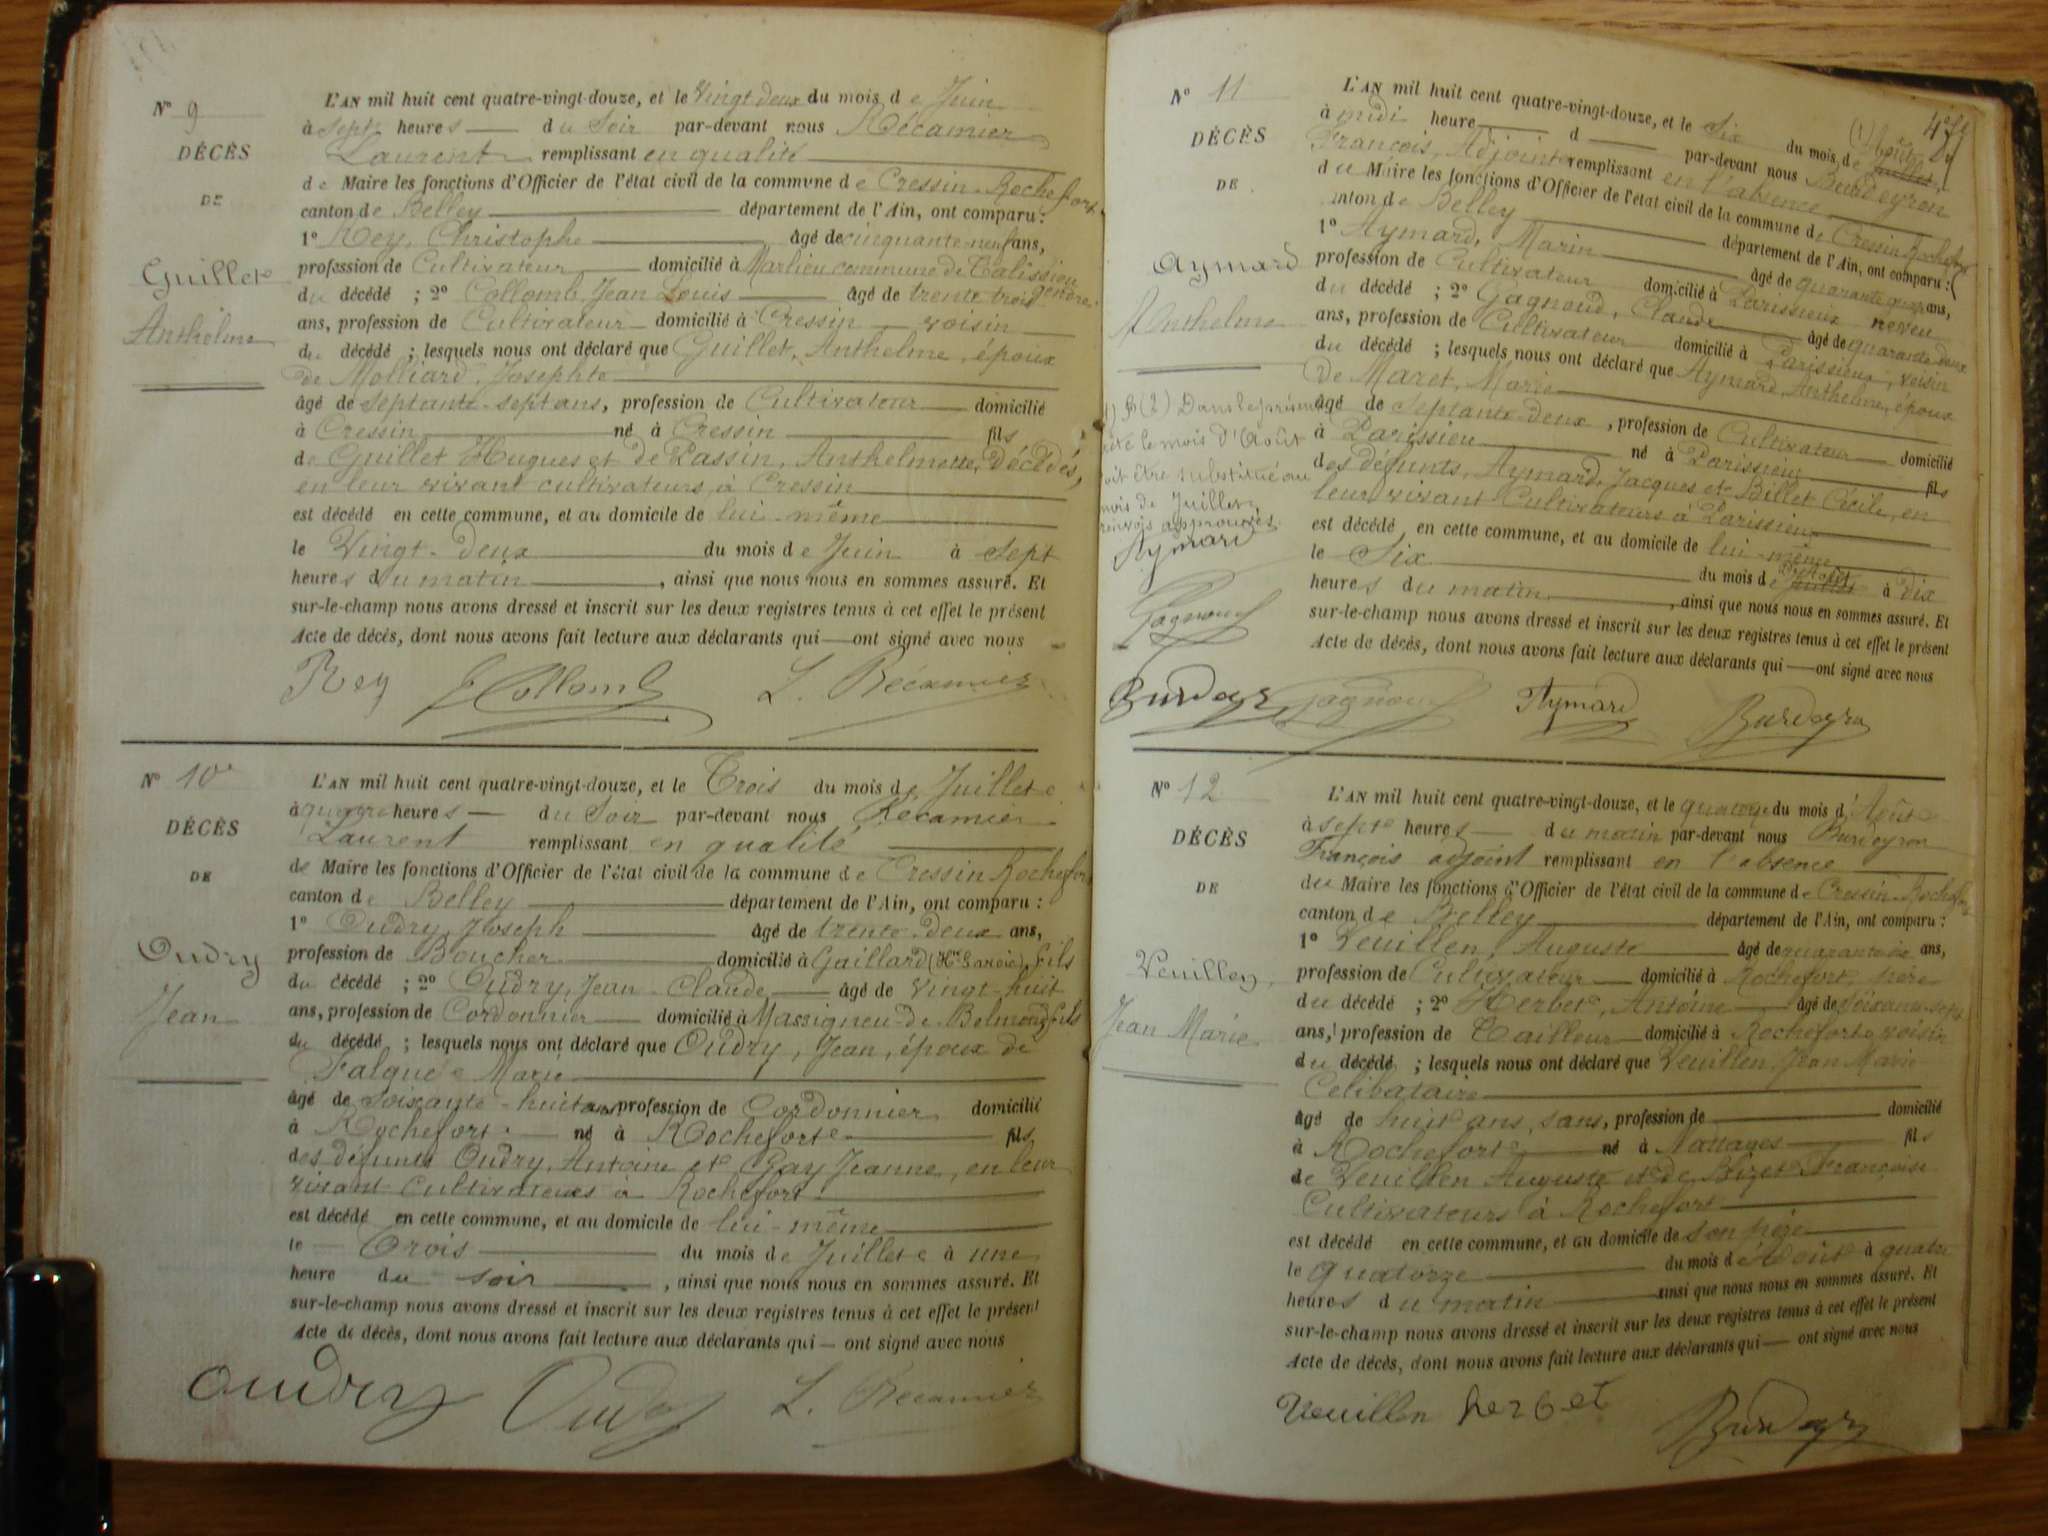 N° 9
DÉCÈS
DE
Guillet
Anthelme
L'AN mil huit cent quatre-vingt-douze, et le Vingt deux du mois de Juin
à sept heures du Soir par-devant nous Récamier
Laurent remplissant en qualité
de Maire les fonctions d'Officier de l'état civil de la commune de Cressin-Rochefort
canton de Belley département de l'Ain, ont comparu :
1° Rey, Christophe âgé de cinquante-neuf ans,
profession de Cultivateur domicilié à Marlieu commune de Talissieu gendre
du décédé ; 2° Collomb, Jean Louis âgé de trente trois
ans, profession de Cultivateur domicilié à Cressin voisin
du décédé ; lesquels nous ont déclaré que Guillet, Anthelme, époux
de Molliard, Josephte
âgé de septante-sept ans, profession de Cultivateur domicilié
à Cressin né à Cressin fils
de Guillet Hugues et de Passin, Anthelmette, décédés,
en leur vivant cultivateurs à Cressin
est décédé en cette commune, et au domicile de lui-même
le Vingt-deux du mois de Juin à sept
heures du matin, ainsi que nous nous en sommes assuré. Et
sur-le-champ nous avons dressé et inscrit sur les deux registres tenus à cet effet le présent
Acte de décès, dont nous avons fait lecture aux déclarants qui — ont signé avec nous
Rey J Collomb L. Récamier
N° 10
DÉCÈS
DE
Oudry
Jean
L'AN mil huit cent quatre-vingt-douze, et le Trois du mois de Juillet
à quatre heures du Soir par-devant nous Récamier
Laurent remplissant en qualité
de Maire les fonctions d'Officier de l'état civil de la commune de Cressin Rochefort
canton de Belley département de l'Ain, ont comparu :
1° Oudry, Joseph âgé de trente-deux ans,
profession de Boucher domicilié à Gaillard (Hte Savoie), fils
du décédé ; 2° Oudry, Jean-Claude âgé de vingt-huit
ans, profession de Cordonnier domicilié à Massigneu-de-Belmont fils
du décédé ; lesquels nous ont déclaré que Oudry, Jean, époux de
Falque Marie
âgé de soixante-huit ans, profession de Cordonnier domicilié
à Rochefort né à Rochefort fils
des défunts Oudry, Antoine et Gay Jeanne, en leur
vivant Cultivateurs à Rochefort
est décédé en cette commune, et au domicile de lui-même
le Trois du mois de Juillet à une
heure du soir, ainsi que nous nous en sommes assuré. Et
sur-le-champ nous avons dressé et inscrit sur les deux registres tenus à cet effet le présent
Acte de décès, dont nous avons fait lecture aux déclarants qui — ont signé avec nous
Oudry Oudry L. Récamier
N° 11
DÉCÈS
DE
Aymard
Anthelme
(2) Dans le présent
acte le mois d'Août
doit être substitué au
mois de Juillet,
renvois approuvés.
Aymard
Gagnoud
Burdeyron
L'AN mil huit cent quatre-vingt-douze, et le Six du mois de Juillet (1) Août
à midi heure d par-devant nous Burdeyron
François, Adjoint remplissant en l'absence
du Maire les fonctions d'Officier de l'état civil de la commune de Cressin Rochefort
canton de Belley département de l'Ain, ont comparu :
1° Aymard, Marin âgé de quarante quatre ans,
profession de Cultivateur domicilié à Parissieu neveu
du décédé ; 2° Gagnoud, Claude âgé de quarante deux
ans, profession de Cultivateur domicilié à Parissieu, voisin
du décédé ; lesquels nous ont déclaré que Aymard, Anthelme, époux
de Maret, Marie
âgé de septante-deux, profession de Cultivateur domicilié
à Parissieu né à Parissieu fils
des défunts, Aymard, Jacques et Billet Cécile, en
leur vivant Cultivateurs à Parissieu
est décédé en cette commune, et au domicile de lui-même
le Six du mois de Juillet (2) Août à dix
heures du matin, ainsi que nous nous en sommes assuré. Et
sur-le-champ nous avons dressé et inscrit sur les deux registres tenus à cet effet le présent
Acte de décès, dont nous avons fait lecture aux déclarants qui — ont signé avec nous
Gagnoud Aymard Burdeyron
N° 12
DÉCÈS
DE
Veuillen
Jean Marie
L'AN mil huit cent quatre-vingt-douze, et le quatorze du mois d'Août
à sept heures du matin par-devant nous Burdeyron
François adjoint remplissant en l'absence
du Maire les fonctions d'Officier de l'état civil de la commune de Cressin-Rochefort
canton de Belley département de l'Ain, ont comparu :
1° Veuillen, Auguste âgé de ans,
profession de Cultivateur domicilié à Rochefort, père
du décédé ; 2° Herbet, Antoine âgé de soixante-sept
ans, profession de Tailleur domicilié à Rochefort voisin
du décédé ; lesquels nous ont déclaré que Veuillen Jean Marie
Célibataire
âgé de huit ans, sans, profession de domicilié
à Rochefort né à Nattages fils
de Veuillen Auguste et de Bizet Françoise
Cultivateurs à Rochefort
est décédé en cette commune, et au domicile de son père
le quatorze du mois d'Août à quatre
heures du matin ainsi que nous nous en sommes assuré. Et
sur-le-champ nous avons dressé et inscrit sur les deux registres tenus à cet effet le présent
Acte de décès, dont nous avons fait lecture aux déclarants qui — ont signé avec nous
Veuillen herbet Burdeyron